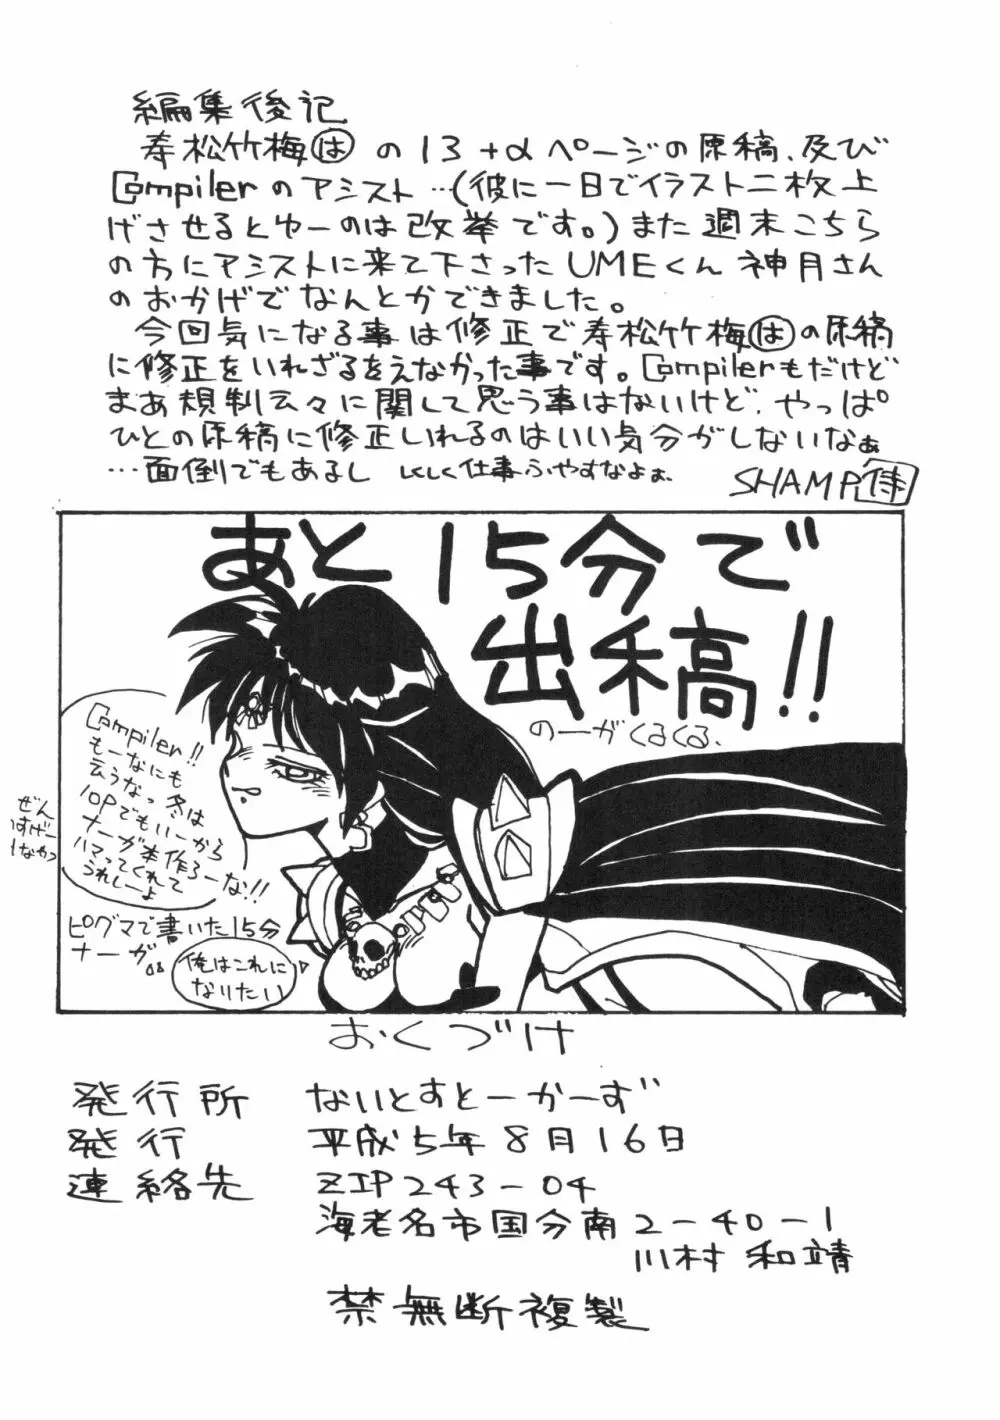 編集後記
寿松竹梅はの13+αページの原稿、及び
Compilerのアシスト…(彼に一日でイラスト二枚上
げさせるとゆーのは改挙です。)また週末こちら
の方にアシストに来て下さったUMEくん神月さん
のおかげでなんとかできました。
今回気になる事は修正で寿松竹梅はの原稿
に修正をいれざるをえなかった事です。Compilerもだけど
まあ規制云々に関して思う事はないけど、やっぱ
ひとの原稿に修正いれるのはいい気分がしないなぁ
…面倒でもあるし しくしく仕事ふやすなよぉ.
SHAMP侍
あと15分で
出稿!!
のーがくるくる.
Compiler!!
もーなにも
云うなっ冬は
10Pでもいーから
ナーガ本作ろーな!!
ハマってくれて
うれしーよ
ぜん
ピグマで書いた15分
ナーガ
俺はこれに
なりたい
おくづけ
発行所 ないとすとーかーず
発行 平成5年8月16日
連絡先 ZIP243-04
海老名市国分南2-40-1
川村和靖
禁無断複製